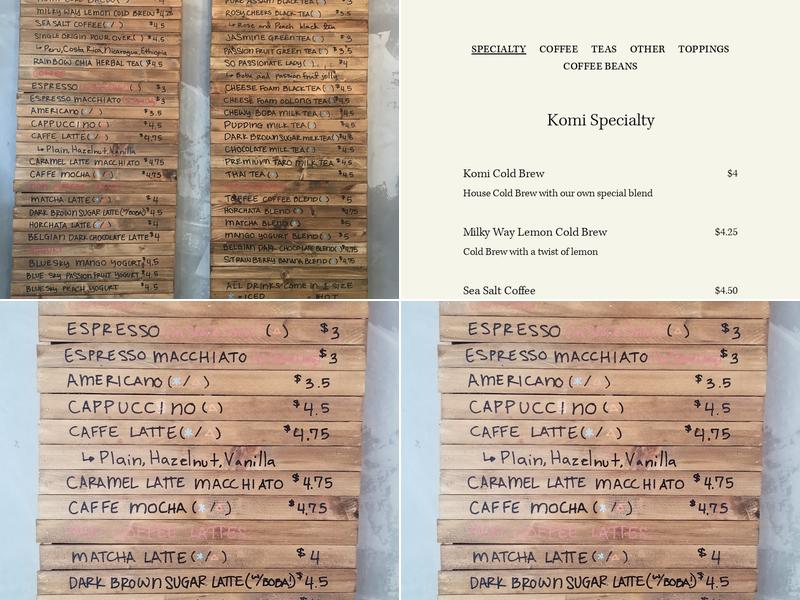 MILKY WAY LEMON COLD BREW
SEA SALT COFFEE( / ) $4.5
SINGLE ORIGIN POUR OVER( ) $4.5
↳ Peru, Costa Rica, Nicaragua, Ethiopia
RAINBOW CHIA HERBAL TEA( ) $4.5
ESPRESSO ( ) $3
ESPRESSO MACCHIATO $3
AMERICANO( / ) $3.5
CAPPUCCINO ( ) $4.5
CAFFE LATTE( / ) $4.75
↳ Plain, Hazelnut, Vanilla
CARAMEL LATTE MACCHIATO $4.75
CAFFE MOCHA( / ) $4.75
MATCHA LATTE( / ) $4
DARK BROWN SUGAR LATTE(W/BOBA!) $4.5
HORCHATA LATTE( ) $4
BELGIAN DARK CHOCOLATE LATTE $4
BLUE SKY MANGO YOGURT $4.5
BLUE SKY PASSION FRUIT YOGURT $4.5
BLUE SKY PEACH YOGURT $4.5
PURE ASSAM BLACK TEA( ) $3
ROSY CHEEKS BLACK TEA( ) $3.5
↳ Rose and Peach black tea
JASMINE GREEN TEA( ) $3
PASSION FRUIT GREEN TEA( ) $3.5
SO PASSIONATE LADY( ) $4
↳ Boba and passion fruit jelly
CHEESE FOAM BLACK TEA( ) $4.5
CHEESE FOAM OOLONG TEA( ) $4.5
CHEWY BOBA MILK TEA( ) $4.5
PUDDING MILK TEA( ) $4.5
DARK BROWN SUGAR MILK TEA( )
CHOCOLATE MILK TEA( ) $4.5
PREMIUM TARO MILK TEA $4.5
THAI TEA( ) $4.5
TOFFEE COFFEE BLEND( ) $5
HORCHATA BLEND( ) $4.75
MATCHA BLEND( ) $5
MANGO YOGURT BLEND( ) $5
BELGIAN DARK CHOCOLATE BLEND( ) $4.75
STRAWBERRY BANANA BLEND( ) $4.75
ALL DRINKS COME IN 1 SIZE
= ICED = HOT
SPECIALTY COFFEE TEAS OTHER TOPPINGS
COFFEE BEANS
Komi Specialty
Komi Cold Brew $4
House Cold Brew with our own special blend
Milky Way Lemon Cold Brew $4.25
Cold Brew with a twist of lemon
Sea Salt Coffee $4.50
ESPRESSO ( ) $3
ESPRESSO MACCHIATO $3
AMERICANO(*/ ) $3.5
CAPPUCCINO ( ) $4.5
CAFFE LATTE(*/ ) $4.75
↳ Plain, Hazelnut, Vanilla
CARAMEL LATTE MACCHIATO $4.75
CAFFE MOCHA (*/ ) $4.75
COFFEE LATTES
MATCHA LATTE (*/ ) $4
DARK BROWN SUGAR LATTE(W/BOBA!) $4.5
ESPRESSO ( ) $3
ESPRESSO MACCHIATO $3
AMERICANO(*/ ) $3.5
CAPPUCCINO ( ) $4.5
CAFFE LATTE(*/ ) $4.75
↳ Plain, Hazelnut, Vanilla
CARAMEL LATTE MACCHIATO $4.75
CAFFE MOCHA (*/ ) $4.75
COFFEE LATTES
MATCHA LATTE (*/ ) $4
DARK BROWN SUGAR LATTE(W/BOBA!) $4.5